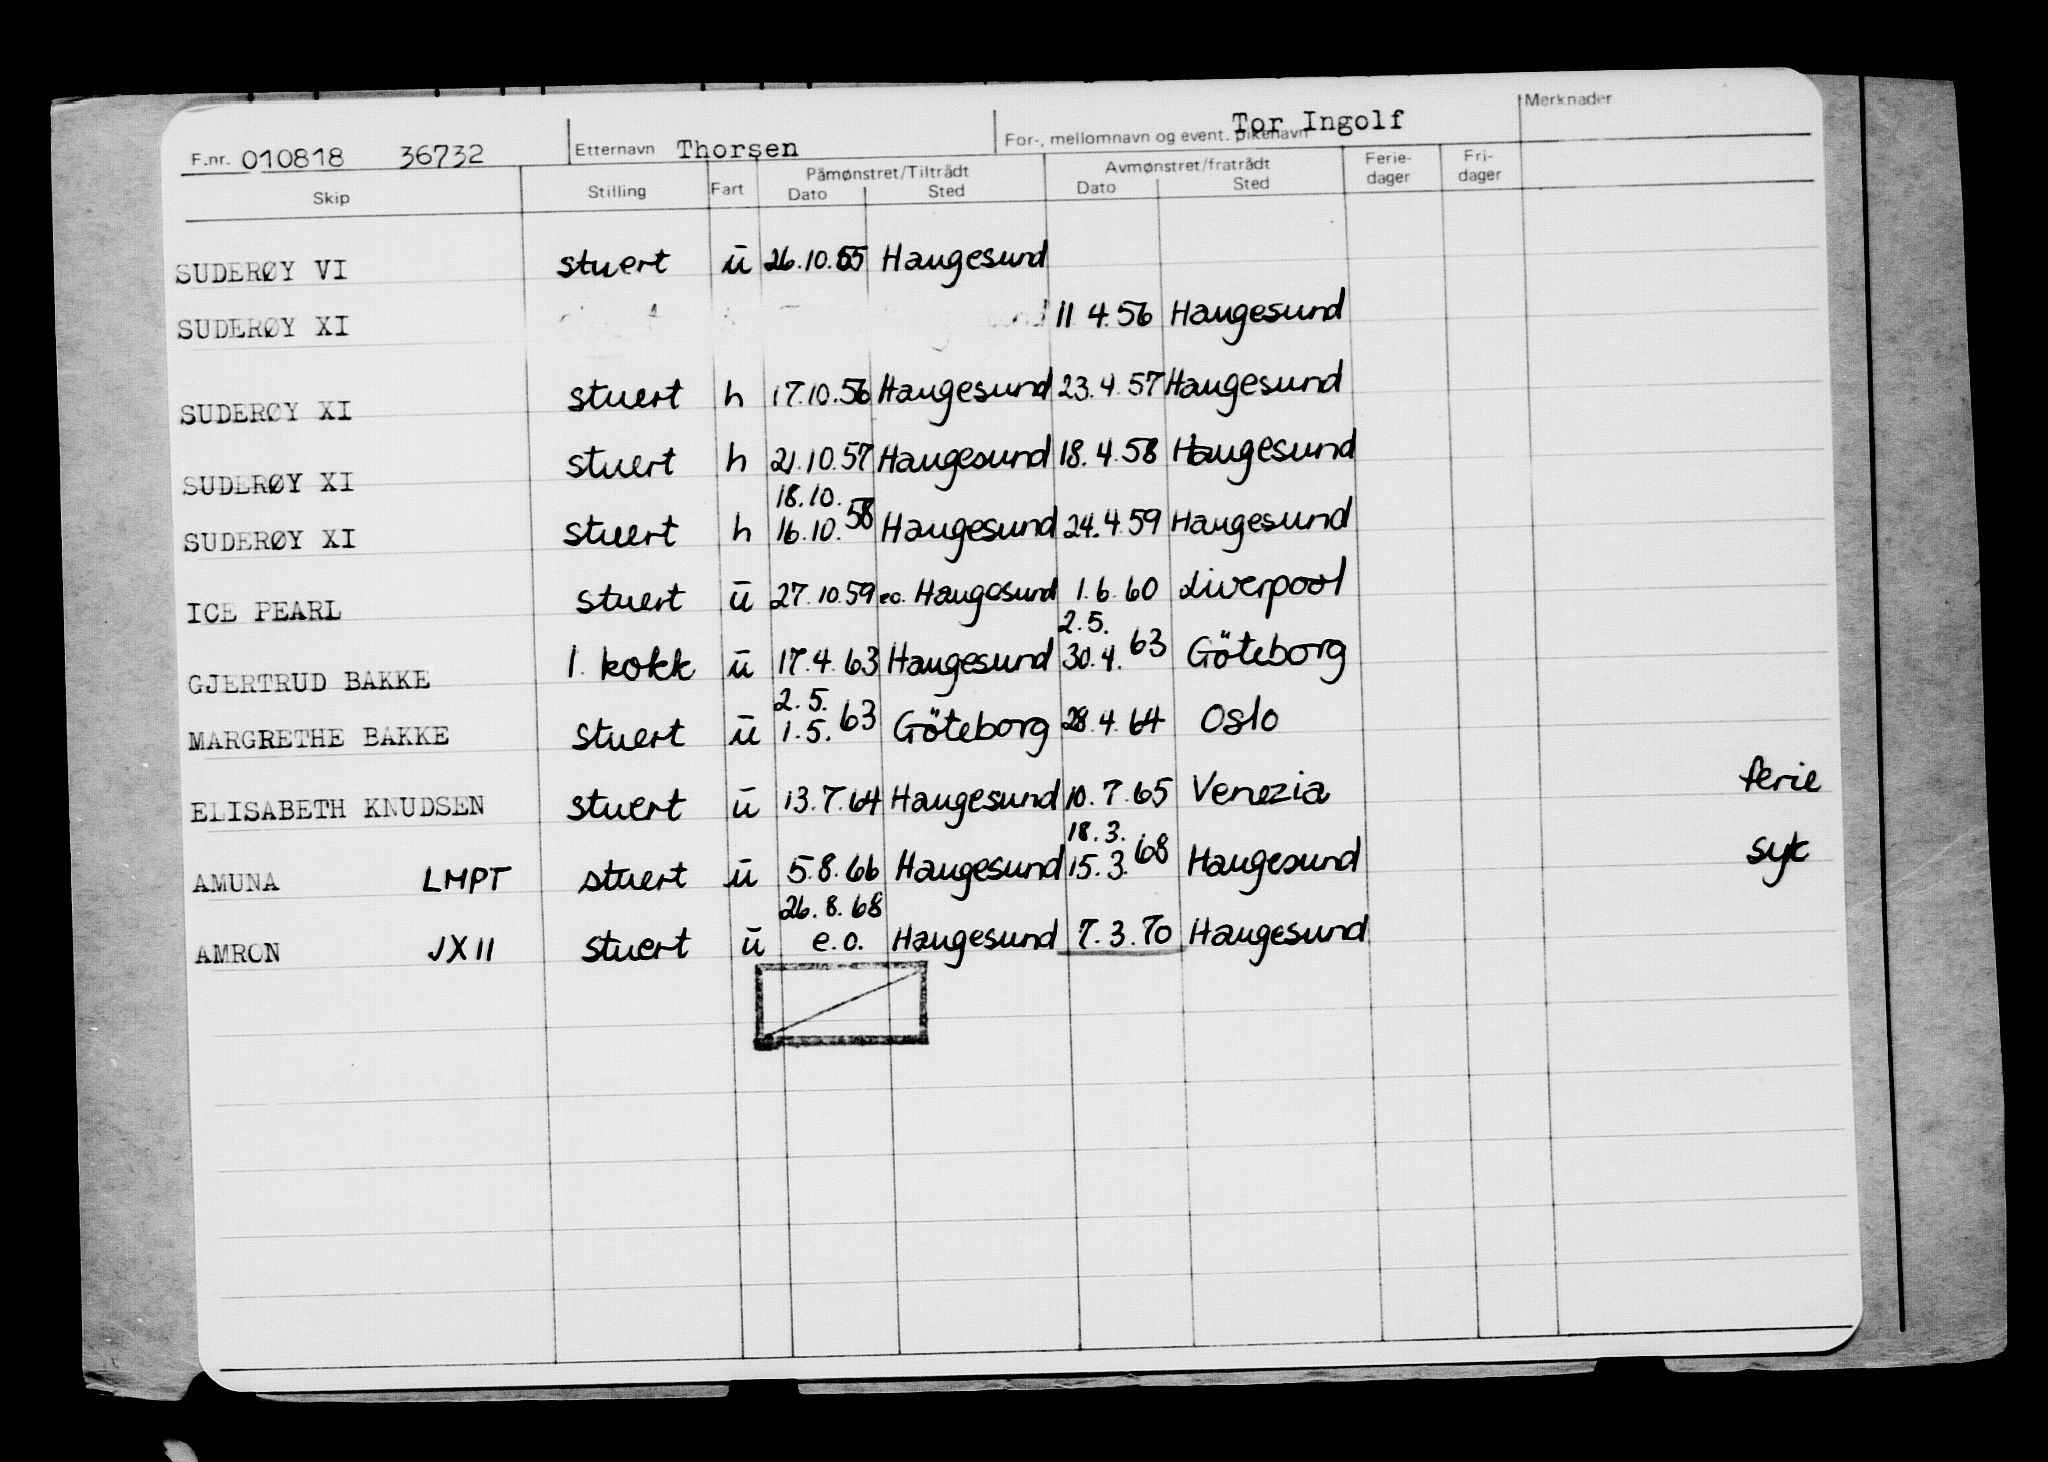 F.nr. 010818 36732 Etternavn Thorsen For-, mellomnavn og event. pikenavn Tor Ingolf Merknader
Skip Stilling Fart Påmønstret/Tiltrådt Dato Sted Avmønstret/fratrådt Dato Sted Ferie-dager Fri-dager
SUDERØY VI stuert ū 26.10.55 Haugesund
SUDERØY XI 11 4.56 Haugesund
SUDERØY XI stuert h 17.10.56 Haugesund 23.4.57 Haugesund
SUDERØY XI stuert h 21.10.57 Haugesund 18.4.58 Haugesund
18.10.
SUDERØY XI stuert h 16.10.58 Haugesund 24.4.59 Haugesund
ICE PEARL stuert ū 27.10.59 eo. Haugesund 1.6.60 Liverpool
2.5.
GJERTRUD BAKKE 1. kokk ū 17.4.63 Haugesund 30.4.63 Göteborg
2.5.
MARGRETHE BAKKE stuert ū 1.5.63 Göteborg 28.4.64 Oslo
ELISABETH KNUDSEN stuert ū 13.7.64 Haugesund 10.7.65 Venezia ferie
18.3.
AMUNA LMPT stuert ū 5.8.66 Haugesund 15.3.68 Haugesund syk
26.8.68
AMRON JXII stuert ū e.o. Haugesund 7.3.70 Haugesund